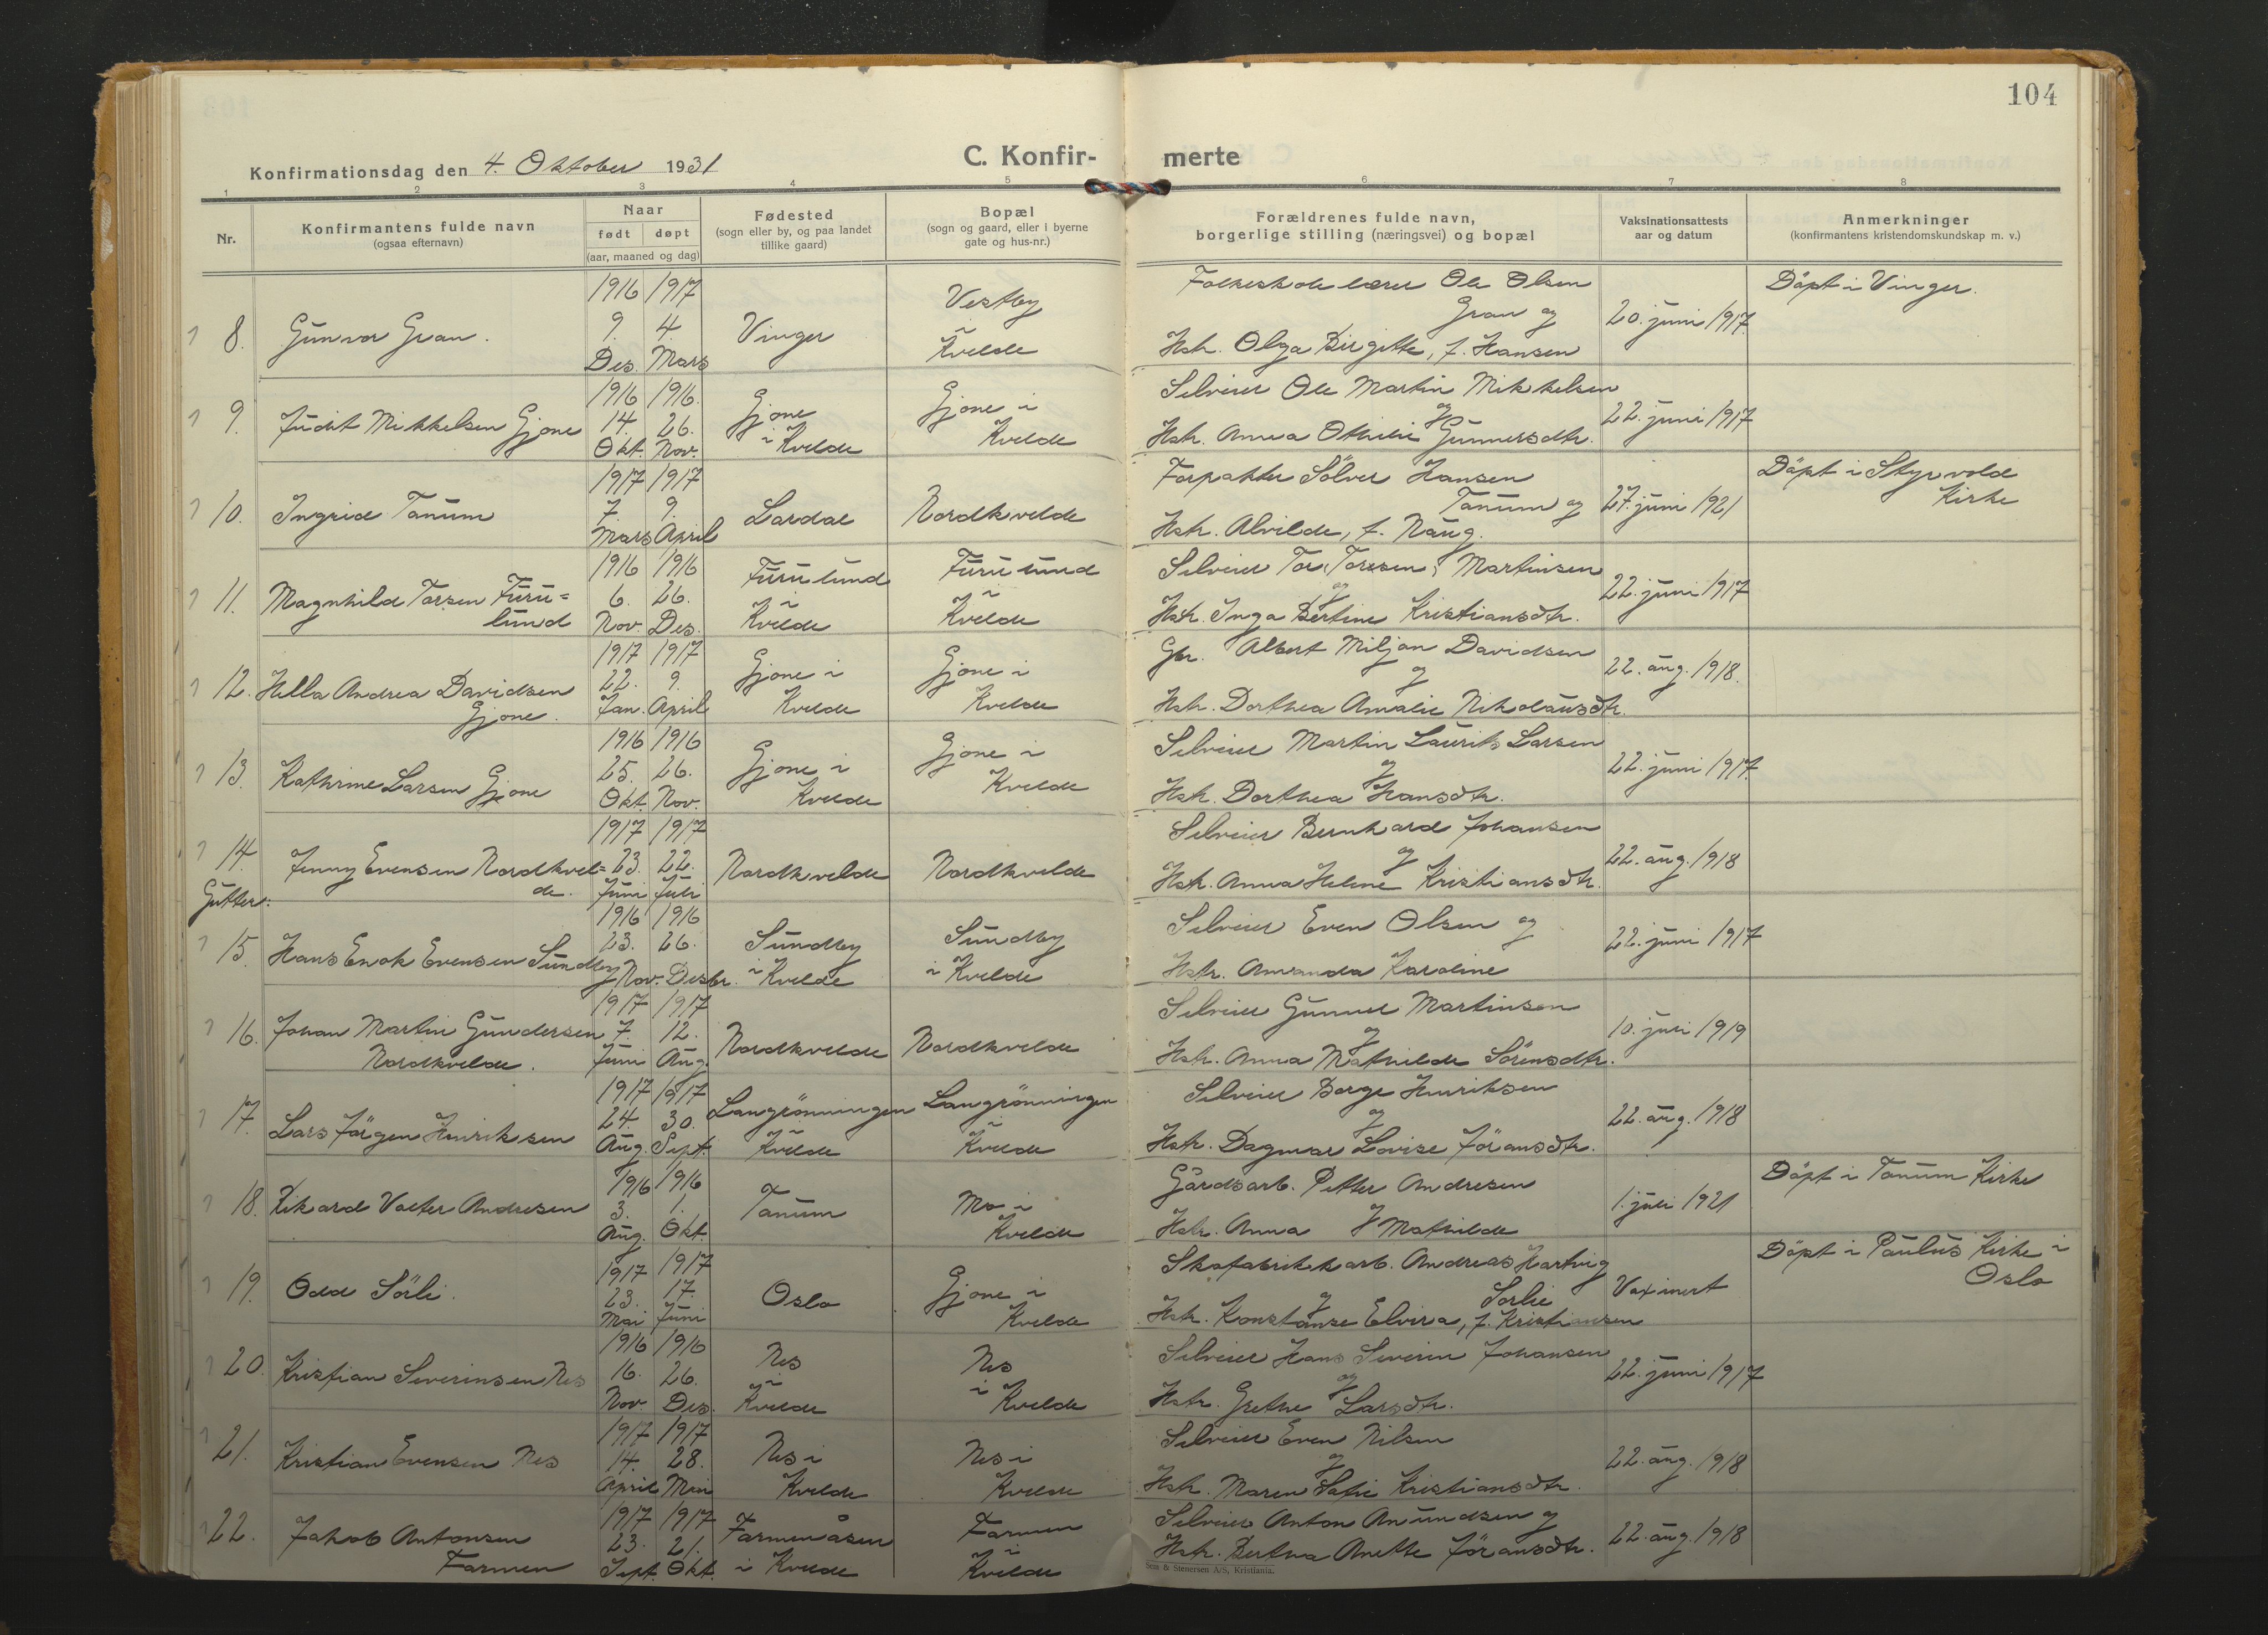 104
C. Konfir-
merte
Konfirmationsdag den 4. Oktober 1931
1 2 3 4 5 6 7 8
Nr.
Konfirmantens fulde navn
(ogsaa efternavn)
Naar
født døpt
(aar, maaned og dag)
Fødested
(sogn eller by, og paa landet
tillike gaard)
Bopæl
(sogn og gaard, eller i byerne
gate og hus-nr.)
Forældrenes fulde navn,
borgerlige stilling (næringsvei) og bopæl
Vaksinationsattests
aar og datum
Anmerkninger
(konfirmantens kristendomskundskap m. v.)
8.
Gunvor Gran.
1916 1917
9. 4.
Des. Mars
Vinger
Vestby
i
Kvelde
Folkeskolelærer Ole Olsen
Gran og
Hstr. Olga Birgitte, f. Hansen
20. juni 1917
Döpt i Vinger.
9.
Judit Mikkelsen Gjone
1916 1916.
14. 26.
Okt. Nov.
Gjone
i Kvelde
Gjone i
Kvelde
Selveier Ole Martin Mikkelsen
og
Hstr. Anna Othilie Gunnersdtr.
22. juni 1917
10.
Ingrid Tanum
1917 1917
7. 9.
Mars April
Lardal
Nordkvelde
Forpakter Sölver Hansen
Tanum og
Hstr. Alvilde, f. Naug.
27. juni 1921
Döpt i Styrvold
Kirke
11.
Magnhild Torsen Furu=
lund
1916 1916
6. 26.
Nov. Des.
Furulund
i
Kvelde
Furulund
i
Kvelde
Selveier Tor (Toresen) Martinsen
og
Hstr. Inga Bertine Kristiansdtr.
22. juni 1917
12.
Hella Andrea Davidsen
Gjone.
1917 1917
22. 9.
Jan. April
Gjone i
Kvelde
Gjone i
Kvelde
Gbr. Albert Miljan Davidsen
og
Hstr. Dorthea Amalie Nikolausdtr.
22. aug. 1918.
13.
Kathrine Larsen Gjone
1916 1916
25. 26.
Okt. Nov.
Gjone i
Kvelde
Gjone i
Kvelde
Selveier Martin Laurits Larsen
og
Hstr. Dorthea Hansdtr.
22. juni 1917.
14.
Jenny Evensen Nordkvel=
de.
1917 1917
23. 22.
Juni Juli
Nordkvelde
Nordkvelde
Selveier Bernhard Johansen
og
Hstr. Anna Helene Kristiansdtr.
22. aug. 1918
Gutter:
15.
Hans Enok Evensen Sundby
1916 1916
23. 26.
Nov. Desbr.
Sundby
i Kvelde
Sundby
i Kvelde
Selveier Even Olsen og
Hstr. Amanda Karoline
22. juni 1917
16.
Johan Martin Gundersen
Nordkvelde.
1917 1917
7. 12.
Juni Aug.
Nordkvelde
Nordkvelde
Selveier Gunner Martinsen
og
Hstr. Anna Mathilde Sörensdtr.
10. juli 1919
17.
Lars Jörgen Henriksen
1917 1917
24. 30.
Aug. Sept.
Langrönningen
i
Kvelde
Langrönningen
i
Kvelde
Selveier Borge Henriksen
og
Hstr. Dagmar Lovise Jöransdtr.
22. aug. 1918
18.
Rikard Valter Andresen
1916 1916
3. 1.
Aug. Okt.
Tanum
Mo i
Kvelde
Gårdsarb. Petter Andresen
og
Hstr. Anna Mathilde
1. juli 1921
Döpt i Tanum Kirke
19.
Odd Sörli.
1917 1917
23. 17.
Mai Juni
Oslo
Gjone i
Kvelde
Skofabrikkarb. Andreas Hartvig
og Sorlie
Hstr. Konstanse Elvira, f. Kristiansen
Vaxinert
Döpt i Paulus Kirke i
Oslo
20.
Kristian Severinsen Nes
1916 1916
16. 26.
Nov. Des.
Nes
i
Kvelde
Nes
i Kvelde
Selveier Hans Severin Johansen
og
Hstr. Grethe Larsdtr.
22. juni 1917
21.
Kristian Evensen Nes
1917 1917
14. 28.
April Mai
Nes i
Kvelde
Nes i
Kvelde
Selveier Even Nilsen
og
Hstr. Maren Sofie Kristiansdtr.
22. aug. 1918
22.
Jakob Antonsen
Farmen
1917 1917
23. 21.
Sept. Okt.
Farmenåsen
i Kvelde
Farmen
i
Kvelde
Selveier Anton Amundsen og
Hstr. Bertha Anette Jöransdtr.
22. aug. 1918
Sem & Stenersen A/S, Kristiania.